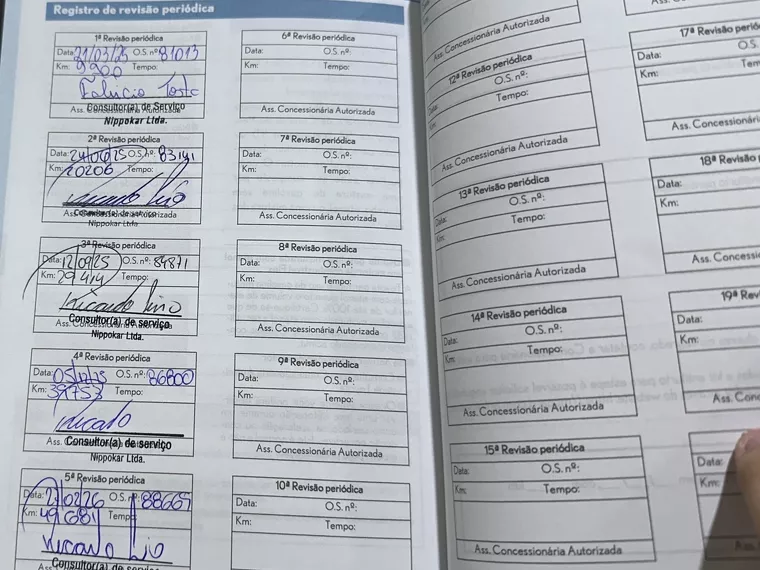 Registro de revisão periódica
1ª Revisão periódica
Data: 21/03/25 O.S. nº: 81013
Km: 9900 Tempo:
Fabricio
Ass. Concessionária Autorizada
Consultor(a) de Serviço
Nippokar Ltda.
2ª Revisão periódica
Data: 24/06/25 O.S. nº: 83141
Km: 20206 Tempo:
Ricardo
Ass. Concessionária Autorizada
Consultor(a) de serviço
Nippokar Ltda.
3ª Revisão periódica
Data: 12/09/25 O.S. nº: 84871
Km: 29414 Tempo:
Ricardo
Ass. Concessionária Autorizada
Consultor(a) de serviço
Nippokar Ltda.
4ª Revisão periódica
Data: 05/12/25 O.S. nº: 86800
Km: 39753 Tempo:
Ricardo
Ass. Concessionária Autorizada
Consultor(a) de serviço
Nippokar Ltda.
5ª Revisão periódica
Data: 2/02/26 O.S. nº: 88665
Km: 49681 Tempo:
Ricardo
Consultor(a) de serviço
6ª Revisão periódica
Data: O.S. nº:
Km: Tempo:
Ass. Concessionária Autorizada
7ª Revisão periódica
Data: O.S. nº:
Km: Tempo:
Ass. Concessionária Autorizada
8ª Revisão periódica
Data: O.S. nº:
Km: Tempo:
Ass. Concessionária Autorizada
9ª Revisão periódica
Data: O.S. nº:
Km: Tempo:
Ass. Concessionária Autorizada
10ª Revisão periódica
Data: O.S. nº:
Km: Tempo:
Ass. Concessionária Autorizada
12ª Revisão periódica
Data: O.S. nº:
Km: Tempo:
Ass. Concessionária Autorizada
13ª Revisão periódica
Data: O.S. nº:
Km: Tempo:
Ass. Concessionária Autorizada
14ª Revisão periódica
Data: O.S. nº:
Km: Tempo:
Ass. Concessionária Autorizada
15ª Revisão periódica
Data: O.S. nº:
Km: Tempo:
Ass. Concessionária Autorizada
Ass. Concessionária
17ª Revisão
Data: O.S.
Km: Tempo
Ass. Concessionária Auto
18ª Revisão
Data:
Km:
Ass. Concessionária
19ª
Data:
Km:
Ass. Conc
Data:
Km: